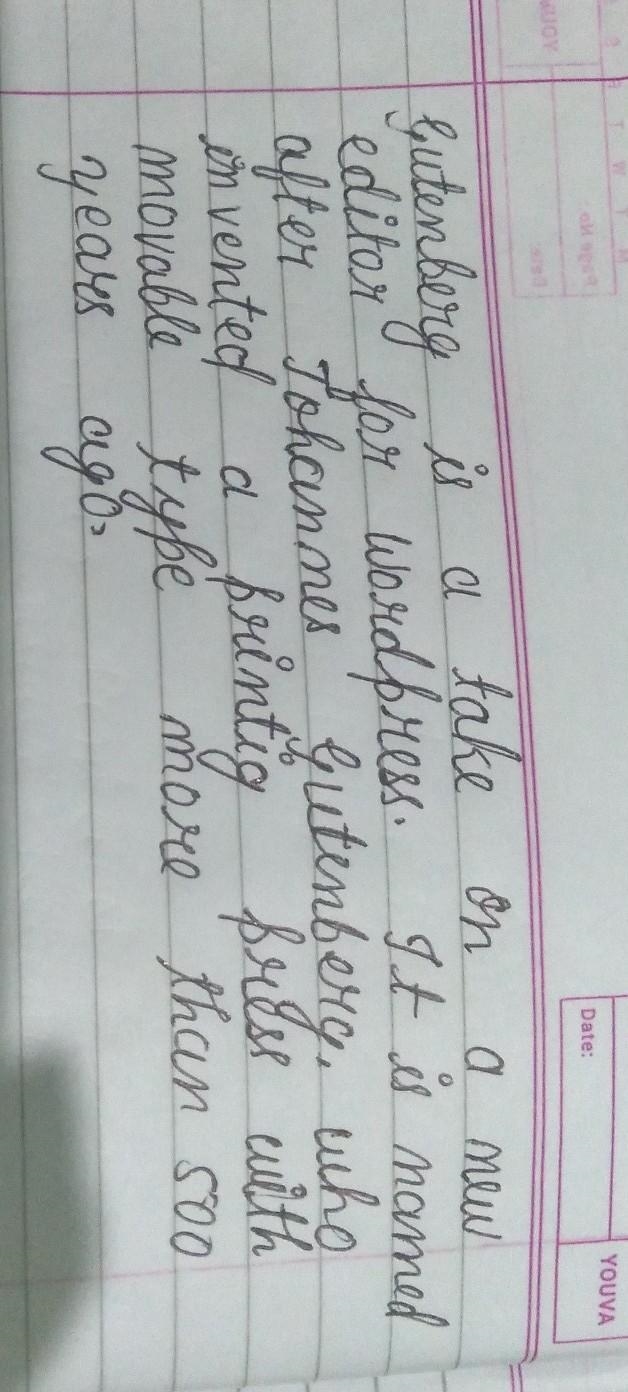 Date:
YOUVA
Gutenberg is a take on a new
editor for wordpress. It is named
after Johannes Gutenberg, who
invented a printig press with
movable type more than 500
years ago.